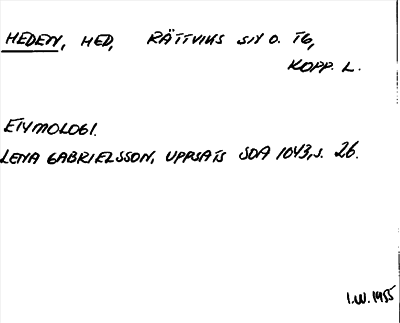 HEDEN, HED, RÄTTVIKS SN O. TG,
KOPP. L.
ETYMOLOGI.
LENA GABRIELSSON, UPPSATS SOA 1043, S. 26.
I.W. 1955